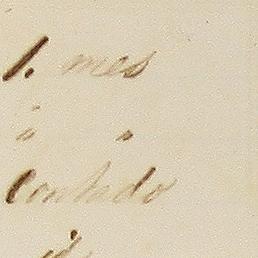 1. mes
" "
Contado